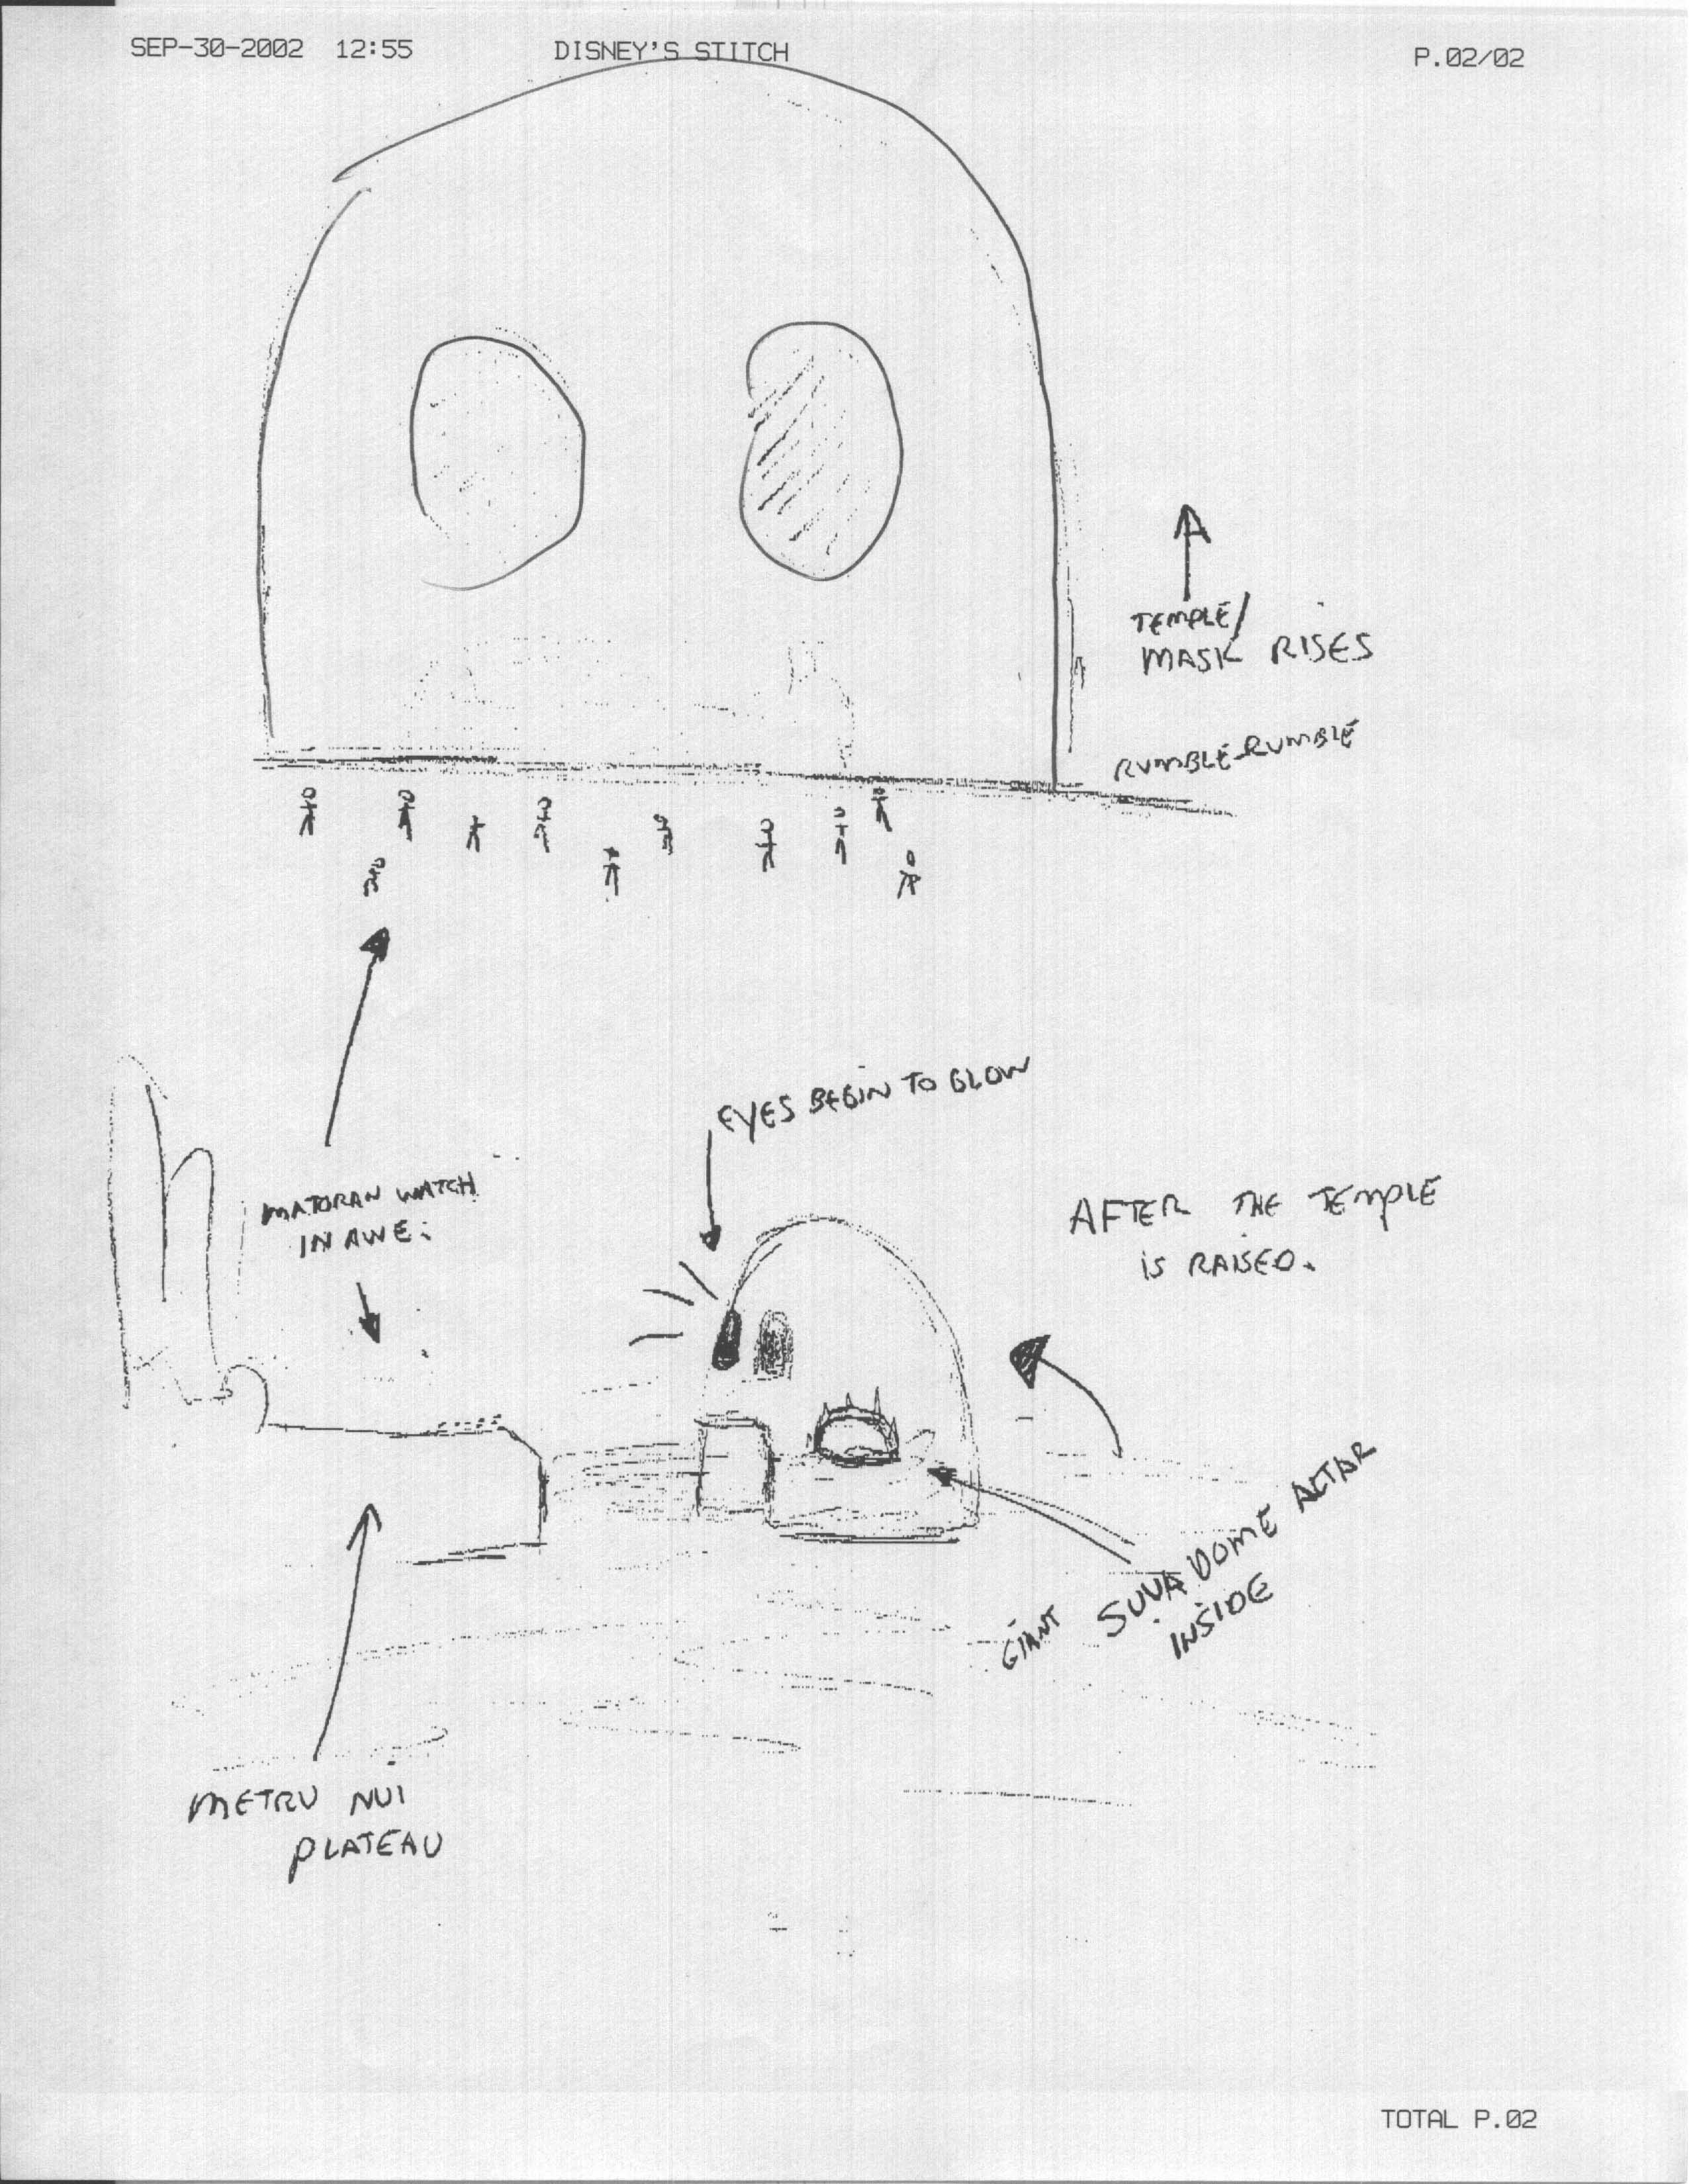 SEP-30-2002 12:55 DISNEY'S STITCH P.02/02
TEMPLE/
MASK RISES
RUMBLE-RUMBLE
EYES BEGIN TO GLOW
MATORAN WATCH
IN AWE.
AFTER THE TEMPLE
IS RAISED.
GIANT SUVA DOME ALTAR
INSIDE
METRU NUI
PLATEAU
TOTAL P.02